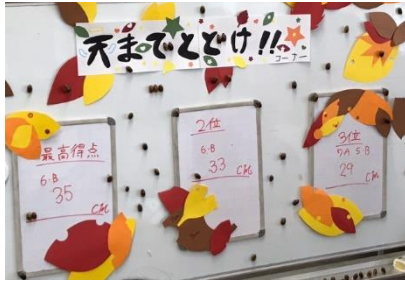 天までとどけ!!
コーナー
最高得点
6-B
35
CM
2位
6-B
33
CM
3位
7A 5-B
29
CM